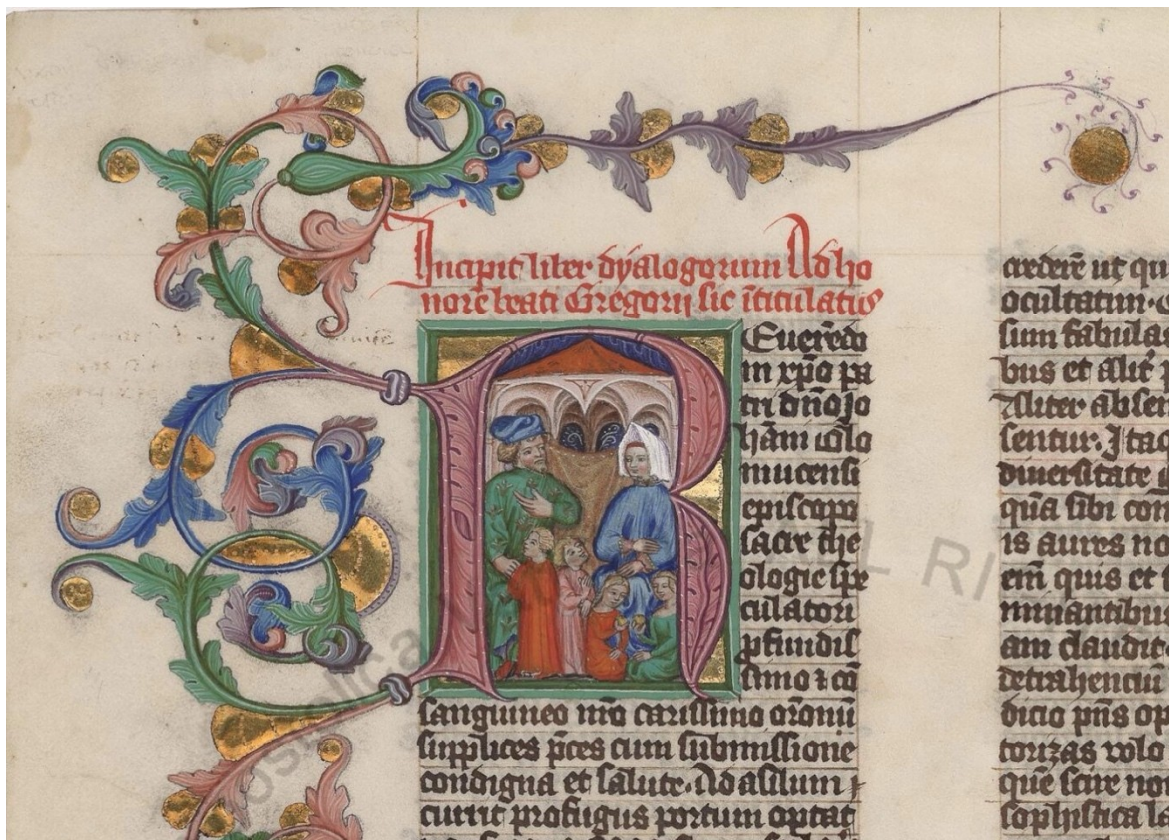 Incipit liber dyalogorum Ad ho
norē beati Gregorij sic ītitulatus
R
Euerēdo
in xpō pa
tri dnō Jo
hāni olo
mucensi
episcopo
sacre the
ologie spe
culatori
pfundis
simo ⁊ cō
sanguineo nrō carissimo orōnū
supplices pces cum submissione
condigna et salute. Ad asilum
currit profugus portum optat
credere ut qu
ocultatum.
sum fabula
bus et alit
Aliter absen
sentur. Itaq
diuersitate
quā sibi con
is aures no
em quis et
minantibu
am claudit
detrahenciū
dicio pns op
torizas volo
que scire no
sophistica la